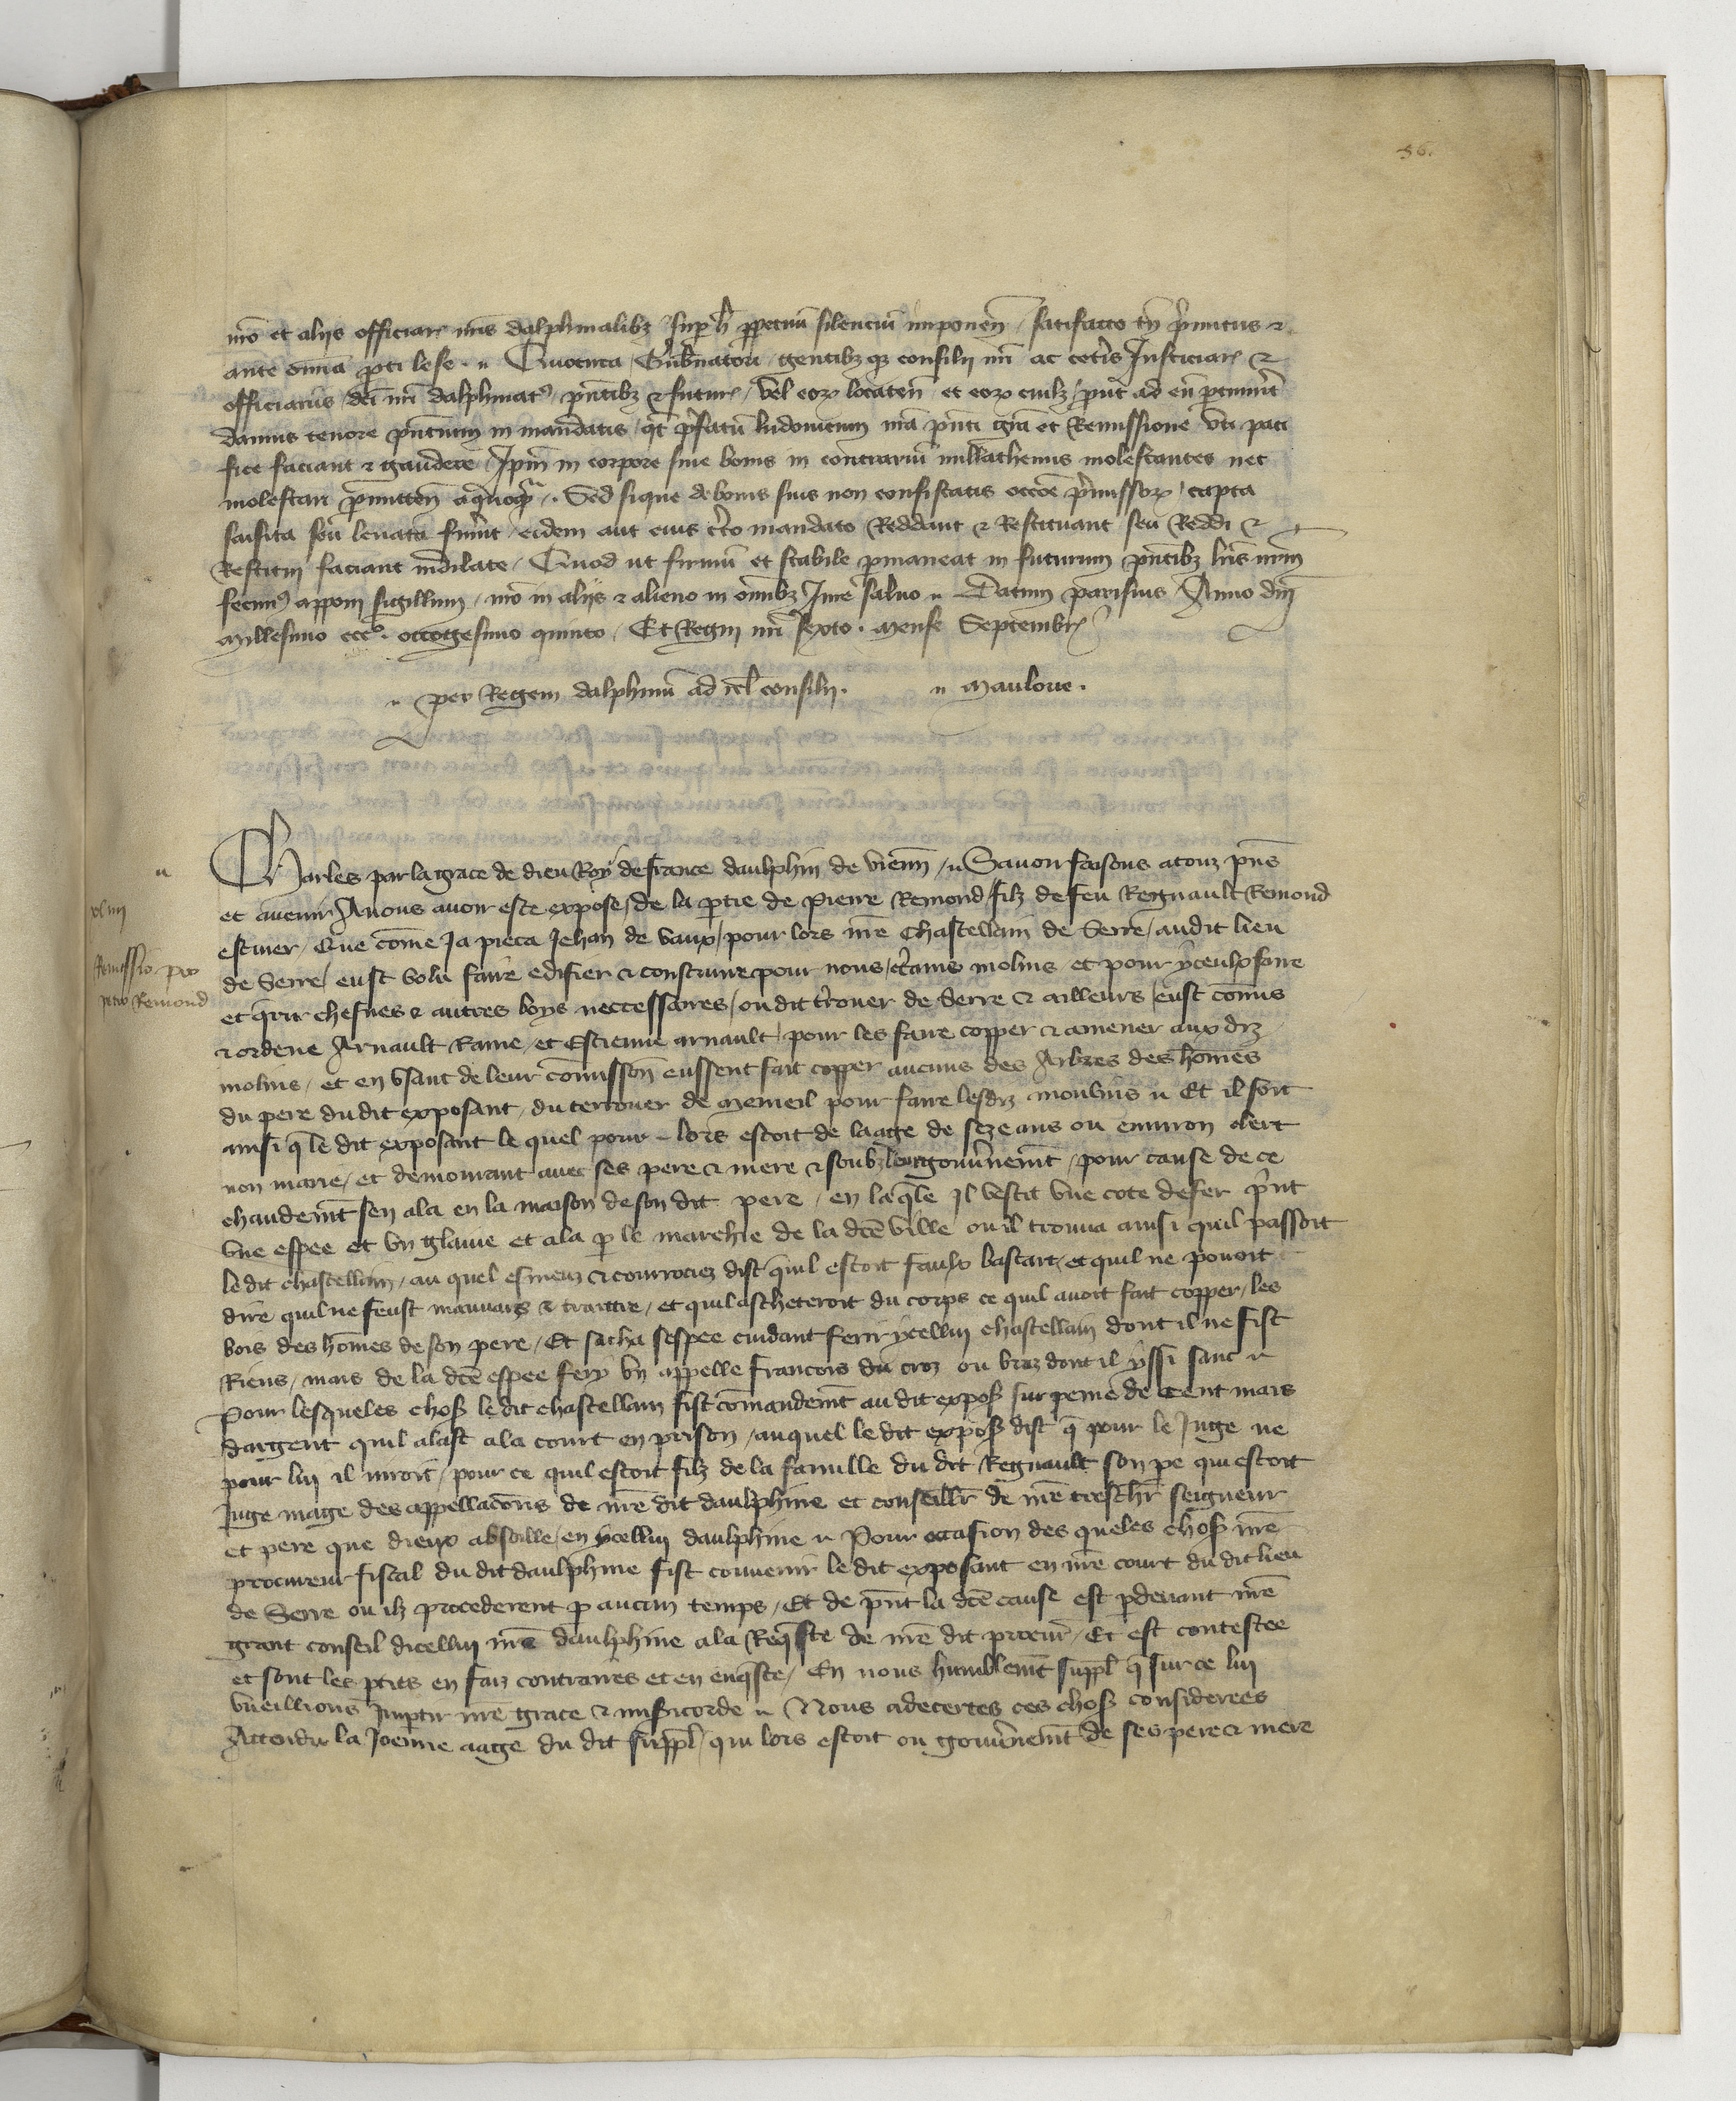 56.
nro et aliis officiar nris dalphinalibz sup h ppetuu silenciu imponen / satisfacto tn primitus &
ante omnia pti lese. Quocirca / Gubnatori / gentibz qz consilii nri ac ceteris Justiciar &
officiariis dci nri dalphinatus pntibz & futur / vel eorum locaten et eorum cuilz / prout ad eu ptinuit
damus tenore pntium in mandatis / qt prefatu ludovicum nra pnti gra et Remissione uti paci
fice faciant & gaudere / Ipm in corpore sive bonis in contrariu nullathenus molestantes nec
molestari pmitten a quoqm. Sed si que de bonis suis non confiscatis occoe premissor / capta
saisita seu levata fuerint / eidem aut eius certo mandato Reddant & Restituant seu Reddi &
Restitui faciant indilate / Quod ut firmu et stabile pmaneat in futurum pntibz lris nrm
fecimus apponi sigillum / nro in aliis & alieno in omnibz Jure salvo Datum parisius / Anno dni
millesimo ccco. octogesimo quinto / Et Regni nri sexto. mense Septembr
per Regem dalphinu ad rel consilii. Mauloue.
Charles par la grace de dieu Roy de france daulphin de vienn / Savoir faisons a touz pns
et avenir A nous avoir este expose / de la ptie de Pierre Remond filz de feu Regnault Remond
escuier / Que come Ja pieca Jehan de vaux / pour lors nre Chastellain de Serre / audit lieu
de Serre / eust volu faire edifier & construire pour nous / ctains molins et pour yceulx faire
et qrir chesnes & autres boys neccessaires / ou dit trouer de Serre & ailleurs / eust comis
& ordene Arnault Rame / et Estienne arnault / pour les faire copper & amener aux diz
molins / et en usant de leur comission eussent fait copper aucuns des Arbres des homes
du pere dudit exposant / du terrouer de Memeil pour faire lesdiz moulins Et il soit
ainsi q le dit exposant le quel pour lors estoit de laage de seze ans ou environ clerc
non marie / et demourant avec ses pere & mere & soubz leur gouvnemt / pour cause de ce
chaudemt sen ala en la maison de son dit pere / en laqle Il vestit une cote de fer print
une espee et un glaive et ala p le marchie de la dce ville ou il trouva ainsi quil passoit
le dit chastellain / au quel esmeuz & courrociez dist quil estoit faulx bastart / et quil ne povoit
dire quil ne feust mauvaiz & traittre / et quil aschetroit du corps ce quil avoit fait copper / les
bois des homes de son pere / Et sacha sespee cuidant ferir ycellui chastellain dont il ne fist
Riens / mais de la dce espee fery un appelle francois du croz ou braz dont il yssi sanc
Pour lesqueles chos le dit chastellain fist comandemt au dit expos sur peine de Cent mars
dargent quil alast a la court en prison / auquel le dit expos dist q pour le Juge ne
pour lui il niroit / pour ce quil estoit filz de la famille du dit Regnault son pe qui estoit
Juge mage des appellacons de nre dit daulphine et conseillr de nre treschr seigneur
et pere que dieux absoille / en ycellui daulphine Pour occasion des queles chos nre
procureur fiscal du dit daulphine fist convenir le dit exposant en nre court du dit lieu
de Serre ou ilz procederent p aucun temps / Et de pnt la dce cause est pdevant nre
grant conseil dicellui nre daulphine a la Reqste de nre dit procur / Et est contestee
et sont les pties en faiz contraires et en enqste / En nous humblemt suppl q sur ce lui
vueillions Impartir nre grace & misicorde Nous adecertes ces chos considerees
Attendu la Joenne aage du dit suppl / qui lors estoit ou gouvnemt de ses pere & mere
Remissio pro
Remond